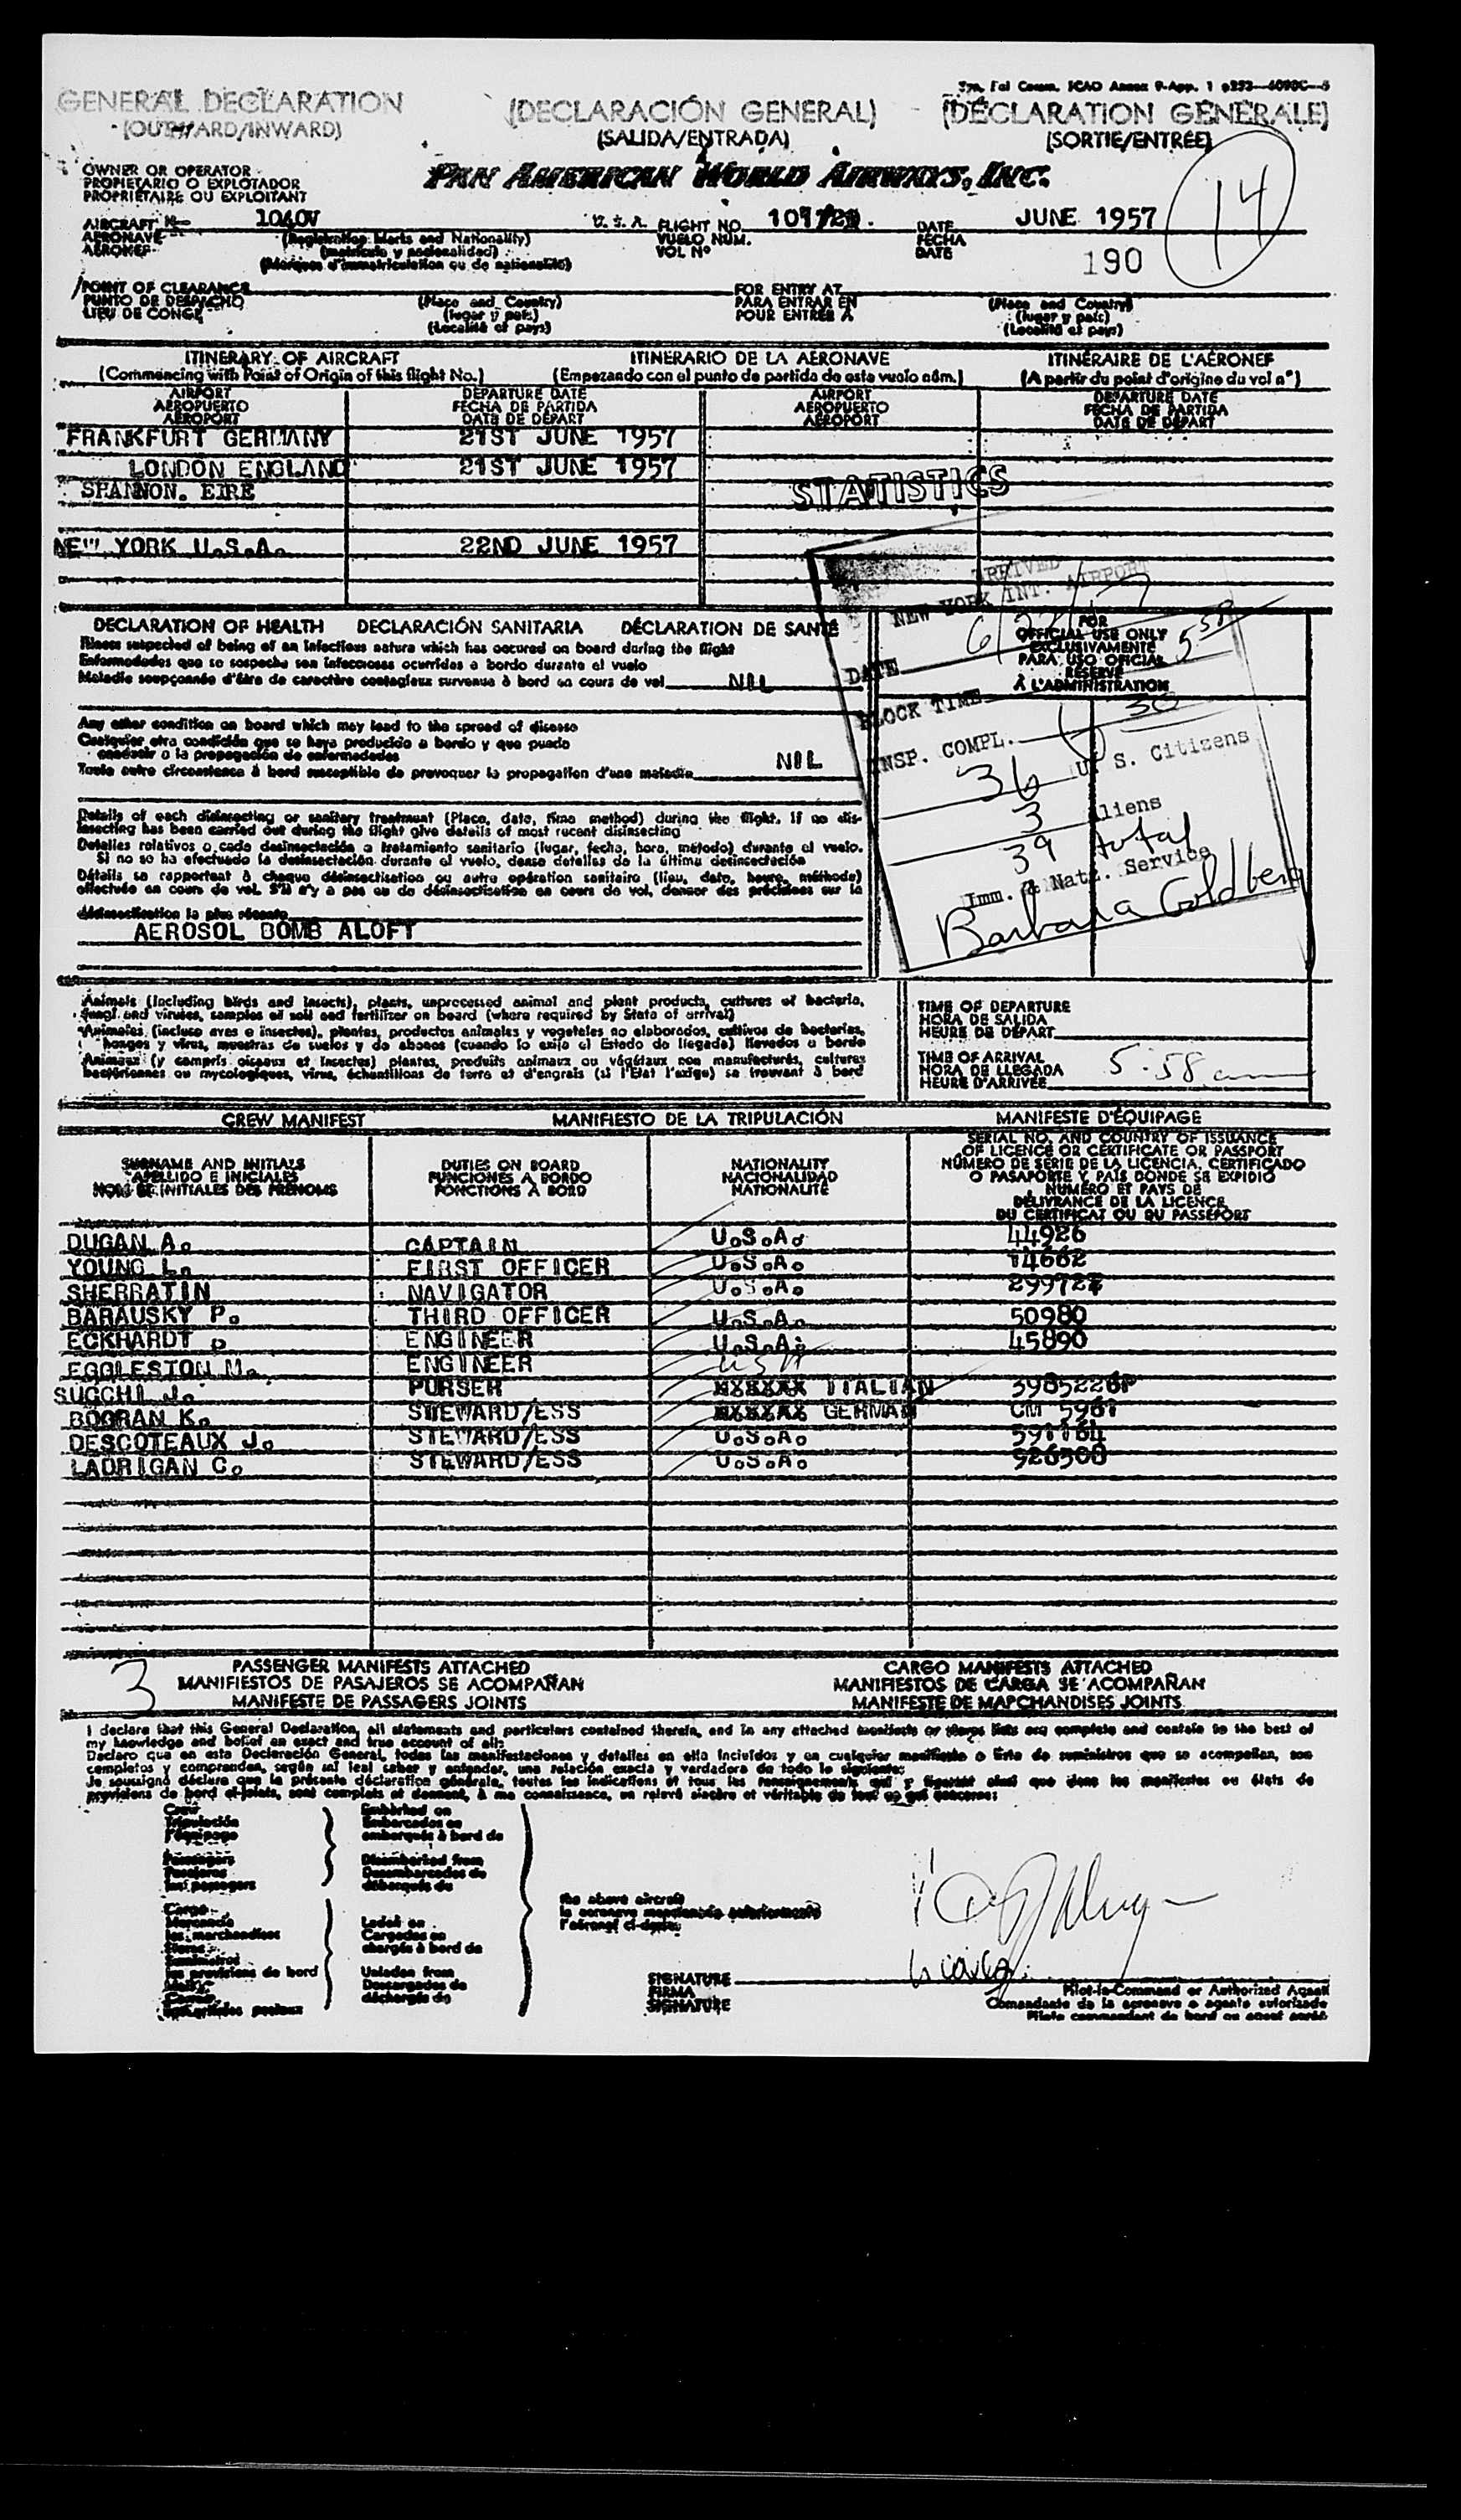 GENERAL DECLARATION (DECLARACIÓN GENERAL) (DÉCLARATION GÉNÉRALE)
(OUTWARD/INWARD) (SALIDA/ENTRADA) (SORTIE/ENTRÉE)
14
OWNER OR OPERATOR
PROPIETARIO O EXPLOTADOR
PROPRIÉTAIRE OU EXPLOITANT
PAN AMERICAN WORLD AIRWAYS, INC.
AIRCRAFT 1040V U.S.A. FLIGHT NO. DATE JUNE 1957
AERONAVE (Registration Marks and Nationality) VUELO NÚM. FECHA
AÉRONEF (matrícula y nacionalidad) VOL Nº DATE 190
(Marques d'immatriculation ou de nationalité)
POINT OF CLEARANCE FOR ENTRY AT
PUNTO DE DESPACHO (Place and Country) PARA ENTRAR EN (Place and Country)
LIEU DE CONGÉ (lugar y país) POUR ENTRER À (lugar y país)
(Localité et pays) (Localité et pays)
ITINERARY OF AIRCRAFT ITINERARIO DE LA AERONAVE ITINÉRAIRE DE L'AÉRONEF
(Commencing with Point of Origin of this flight No.) (Empezando con el punto de partida de este vuelo núm.) (A partir du point d'origine du vol nº)
AIRPORT DEPARTURE DATE AIRPORT DEPARTURE DATE
AEROPUERTO FECHA DE PARTIDA AEROPUERTO FECHA DE PARTIDA
AÉROPORT DATE DE DÉPART AÉROPORT DATE DE DÉPART
FRANKFURT GERMANY 21ST JUNE 1957
LONDON ENGLAND 21ST JUNE 1957
SHANNON. EIRE
STATISTICS
NEW YORK U.S.A. 22ND JUNE 1957
ARRIVED
NEW YORK INT. AIRPORT
DATE 6/22/57
BLOCK TIME 5 58
INSP. COMPL. 30
36 U. S. Citizens
3 Aliens
39 total
Imm. & Natz. Service
Barbara Goldberg
FOR
OFFICIAL USE ONLY
EXCLUSIVAMENTE
PARA USO OFICIAL
RÉSERVÉ
À L'ADMINISTRATION
DECLARATION OF HEALTH DECLARACIÓN SANITARIA DÉCLARATION DE SANTÉ
Illness suspected of being of an infectious nature which has occured on board during the flight
Enfermedades que se sospeche sean infecciosas ocurridas a bordo durante el vuelo
Maladie soupçonnée d'être de caractère contagieux survenue à bord en cours de vol NIL
Any other condition on board which may lead to the spread of disease
Cualquier otra condición que se haya producido a bordo y que pueda
conducir a la propagación de enfermedades
Toute autre circonstance à bord susceptible de provoquer la propagation d'une maladie NIL
Details of each disinsecting or sanitary treatment (Place, date, time method) during the flight. If no dis-
insecting has been carried out during the flight give details of most recent disinsecting
Detalles relativos a cada desinsectación o tratamiento sanitario (lugar, fecha, hora, método) durante el vuelo.
Si no se ha efectuado la desinsectación durante el vuelo, dense detalles de la última desinsectación
Détails se rapportant à chaque désinsectisation ou autre opération sanitaire (lieu, date, heure, méthode)
effectuée en cours de vol. S'il n'y a pas eu de désinsectisation en cours de vol, donner des précisions sur la
désinsectisation la plus récente
AEROSOL BOMB ALOFT
Animals (including birds and insects), plants, unprocessed animal and plant products, cultures of bacteria,
fungi and viruses, samples of soil and fertilizer on board (where required by State of arrival)
Animales (incluso aves e insectos), plantas, productos animales y vegetales no elaborados, cultivos de bacterias,
hongos y virus, muestras de suelos y de abonos (cuando lo exija el Estado de llegada) llevados a bordo
Animaux (y compris oiseaux et insectes) plantes, produits animaux ou végétaux non manufacturés, cultures
bactériennes ou mycologiques, virus, échantillons de terre et d'engrais (si l'État l'exige) se trouvant à bord
TIME OF DEPARTURE
HORA DE SALIDA
HEURE DE DÉPART
TIME OF ARRIVAL
HORA DE LLEGADA 5:58 am
HEURE D'ARRIVÉE
CREW MANIFEST MANIFIESTO DE LA TRIPULACIÓN MANIFESTE D'ÉQUIPAGE
SURNAME AND INITIALS DUTIES ON BOARD NATIONALITY SERIAL NO. AND COUNTRY OF ISSUANCE
APELLIDO E INICIALES FUNCIONES A BORDO NACIONALIDAD OF LICENCE OR CERTIFICATE OR PASSPORT
NOM ET INITIALES DES PRÉNOMS FONCTIONS À BORD NATIONALITÉ NÚMERO DE SERIE DE LA LICENCIA, CERTIFICADO
O PASAPORTE Y PAÍS DONDE SE EXPIDIÓ
NUMÉRO ET PAYS DE
DÉLIVRANCE DE LA LICENCE
DU CERTIFICAT OU DU PASSEPORT
DUGAN A. CAPTAIN U.S.A. 44926
YOUNG L. FIRST OFFICER U.S.A. 14662
SHERRATIN NAVIGATOR U.S.A.
BARAUSKY P. THIRD OFFICER U.S.A. 50980
ECKHARDT ENGINEER U.S.A. 45890
EGGLESTON M. ENGINEER USA
SUCCHI J. PURSER ITALIAN 3985226P
BOORAN K. STEWARD/ESS GERMAN CM 5961
DESCOTEAUX J. STEWARD/ESS U.S.A. 591164
LADRIGAN C. STEWARD/ESS U.S.A. 926500
3 PASSENGER MANIFESTS ATTACHED CARGO MANIFESTS ATTACHED
MANIFIESTOS DE PASAJEROS SE ACOMPAÑAN MANIFIESTOS DE CARGA SE ACOMPAÑAN
MANIFESTE DE PASSAGERS JOINTS MANIFESTE DE MARCHANDISES JOINTS
I declare that this General Declaration, all statements and particulars contained therein, and in any attached manifests or stores lists are complete and contain to the best of
my knowledge and belief an exact and true account of all:
Declaro que en esta Declaración General, todas las manifestaciones y detalles en ella incluidos y en cualquier manifiesto o lista de suministros que se acompañan, son
completos y comprenden, según mi leal saber y entender, una relación exacta y verdadera de todo lo siguiente:
Je soussigné déclare que la présente déclaration générale, toutes les indications et tous les renseignements qui y figurent ainsi que dans les manifestes ou états de
provisions de bord ci-joints, sont complets et donnent, à ma connaissance, un relevé sincère et véritable de tout ce qui concerne:
Crew Embarked on
Tripulación Embarcados en
l'équipage embarqués à bord de
Passengers Disembarked from
Pasajeros Desembarcados de
les passagers débarqués de
the above aircraft
la aeronave mencionada anteriormente
l'aéronef ci-dessus
Cargo
Mercancía Laden on
les marchandises Cargados en
Stores chargés à bord de
Suministros
les provisions de bord Unladen from
Mail Descargados de
Correo déchargés de
les articles postaux
SIGNATURE
FIRMA
SIGNATURE
Pilot-in-Command or Authorized Agent
Comandante de la aeronave o agente autorizado
Pilote commandant de bord ou agent agréé